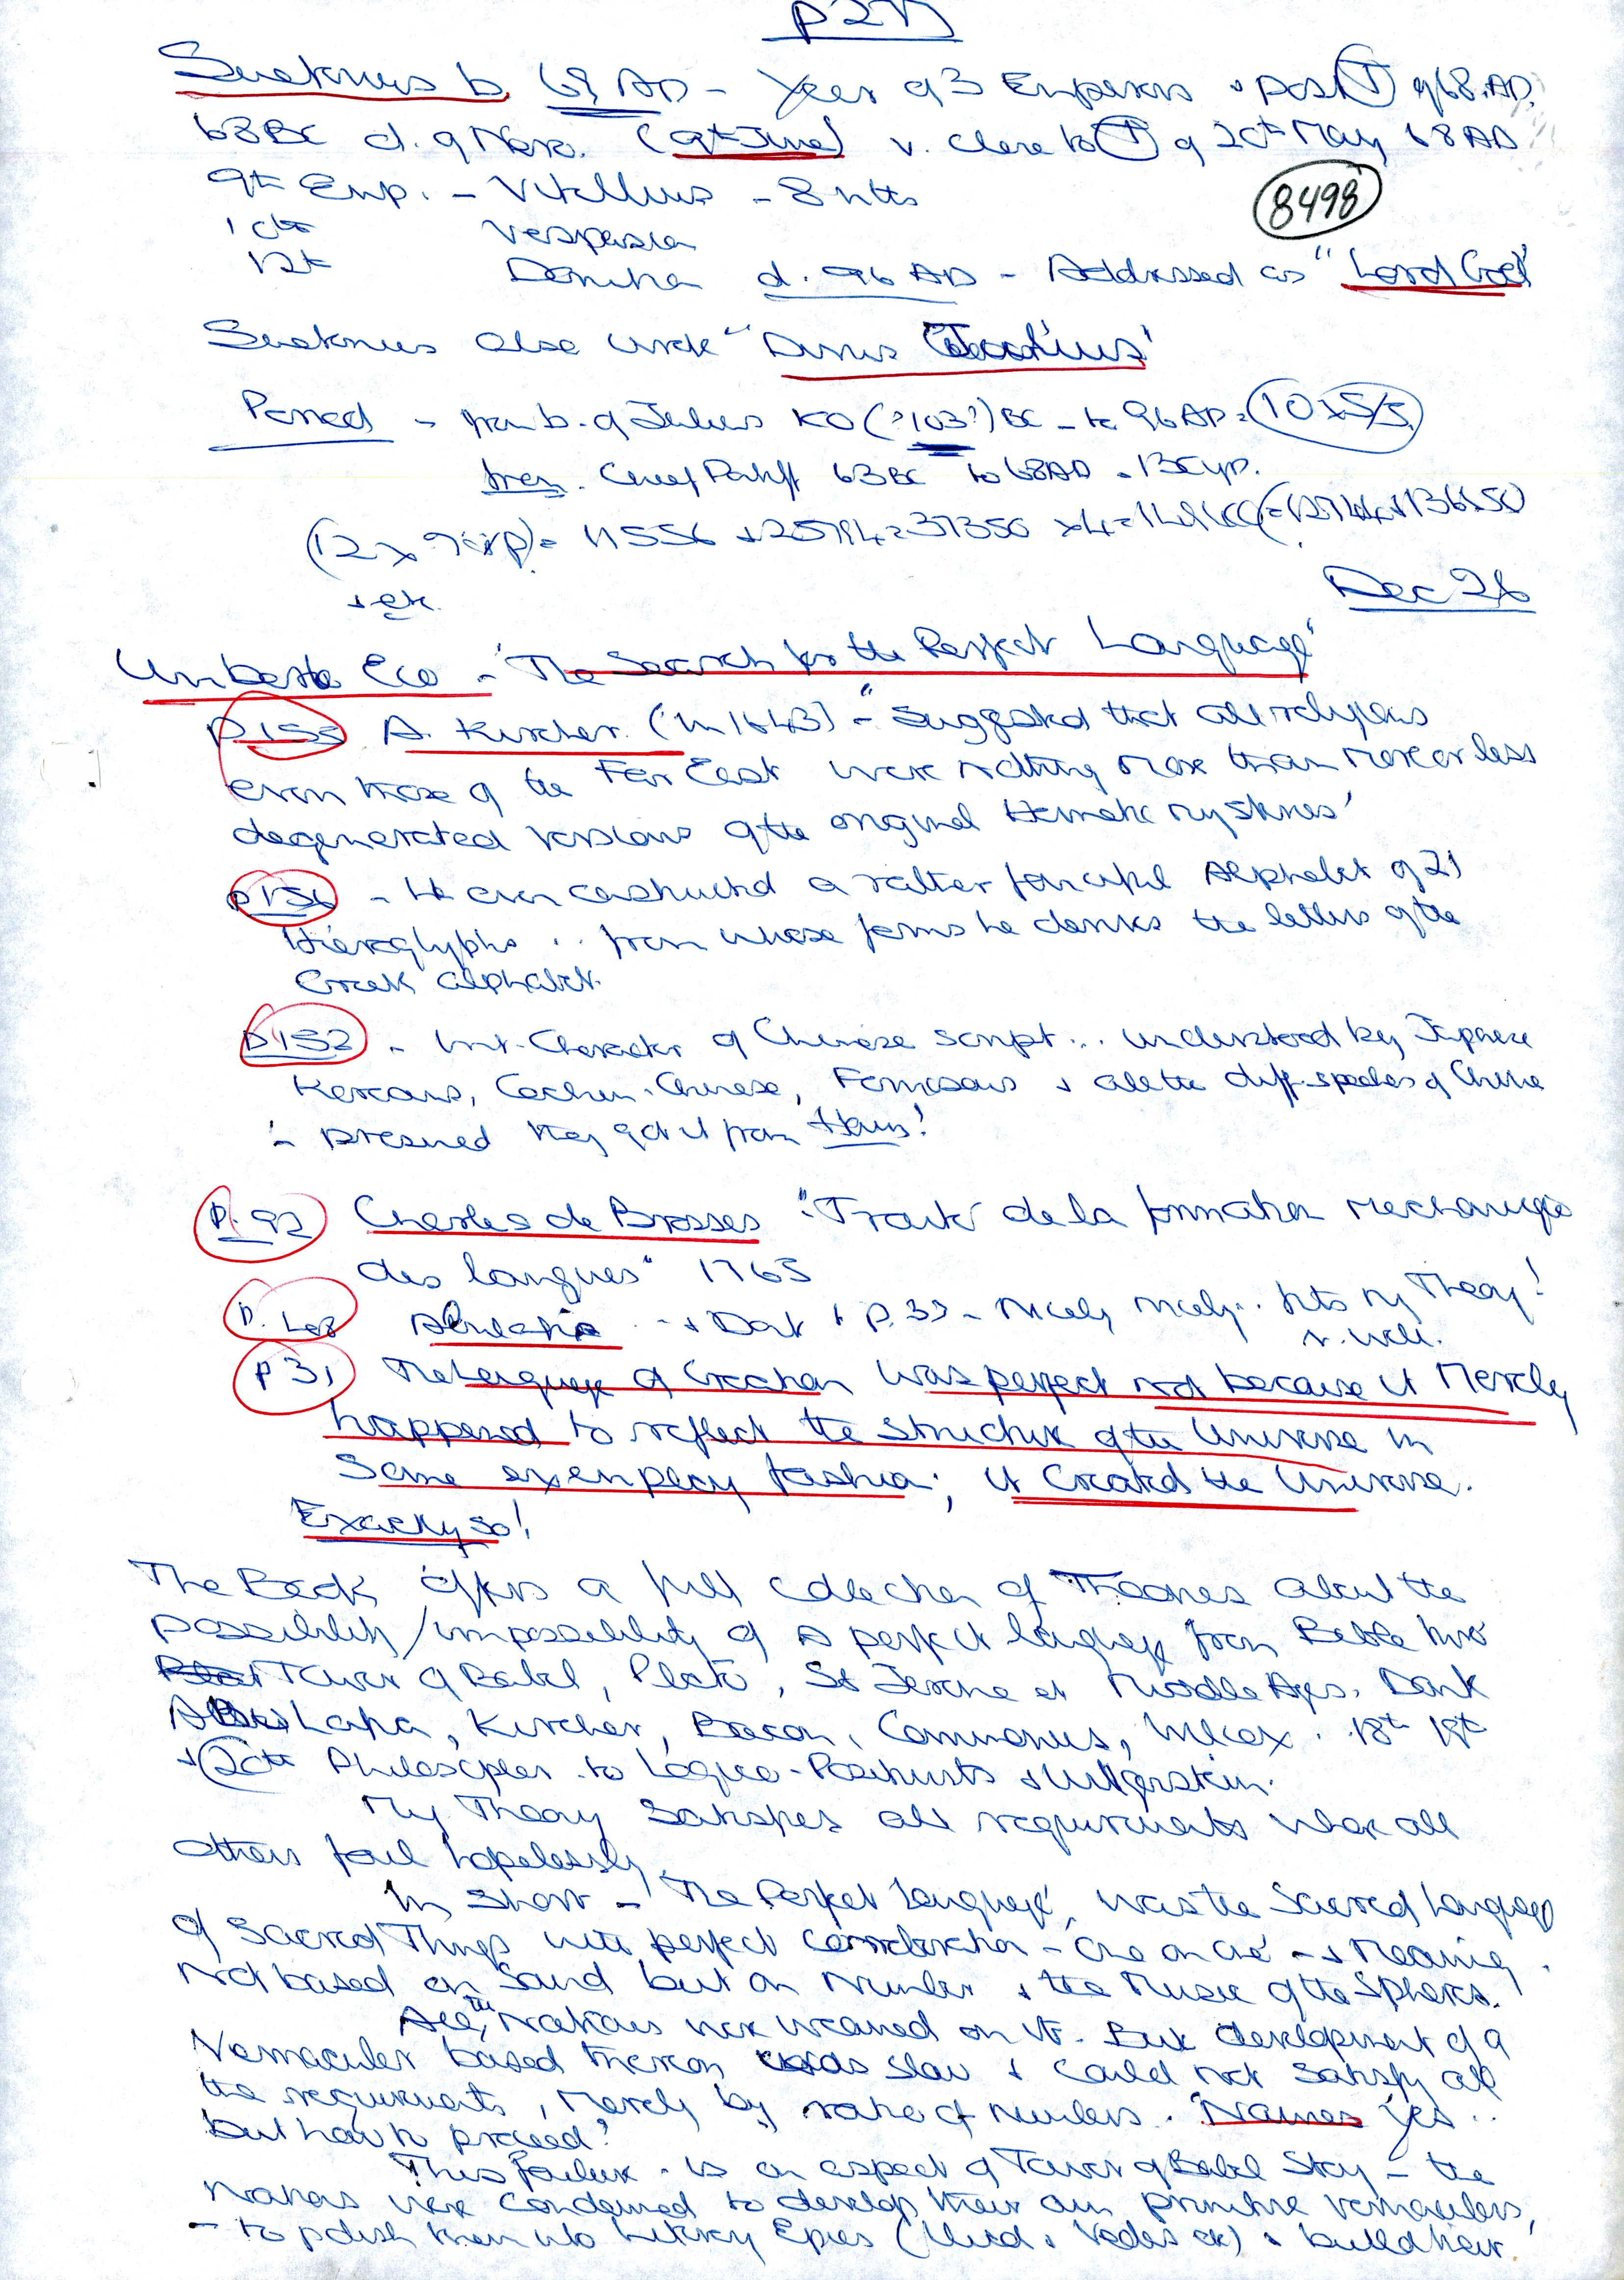 Suetonius b. 69 AD - Year of 3 Emperors + post (T) of 68 AD.
68BC d. of Nero. (9th June) v. close to (T) of 20th May 68 AD
9th Emp. - Vitellius - 8 mths
8498
10th Vespasian
12th Domitian d. 96 AD - Addressed as "Lord God"
Suetonius also wrote "Divus Claudius"
Period - from b. of Julius (?103?) BC - to 96 AD =
from Chief Pontiff 63BC to 68AD = 130yrs.
(12 x 963 = 11556 + 25794 = 37350 x 4 = 149400
+ etc.
Dec 26
Umberto Eco - 'The Search for the Perfect Language'
p155 A. Kircher. (in 1643) - "Suggested that all religions
even those of the Far East were nothing more than more or less
degenerated versions of the original Hermetic mysteries'
p156 - He even constructed a rather fanciful Alphabet of 21
Hieroglyphs .. from whose forms he derives the letters of the
Greek alphabet.
P152 - Int. Character of Chinese script ... understood by Japanese
Koreans, Cochin-Chinese, Formosans + all the diff. speakers of China
- presumed they got it from Ham!
P. 92 Charles de Brosses "Traité de la formation mechanique
des langues" 1765
P. Abulafia - + Dant + p. 33 - Nicely nicely.. fits my Theory!
v. well.
p 31 The Language of Creation was perfect not because it Merely
happened to reflect the structure of the Universe in
Some exemplary fashion; it Created the Universe.
Exactly so!
The Book offers a full collection of Theories about the
possibility/impossibility of a perfect language from Bible time
Tower of Babel, Plato, St Jerome et Middle Ages. Dante
Abulafia, Kircher, Bacon, Commenius, Wilcox. 18th 19th
+ 20th Philosopher to Logico-Positivists + Wittgenstein.
My Theory Satisfies all requirements where all
others fail hopelessly.
In Short - 'The Perfect Language', was the Sacred Language
of Sacred Things with perfect correlation - 'one on one' - + Meaning
Not based on Sound but on Number + the Music of the Spheres.
All the Nations were weaned on it. But development of a
Vernacular based thereon was slow + could not satisfy all
the requirements, merely by ratio of numbers. 'Names' Yes ..
but how to proceed?
This failure - is an aspect of Tower of Babel Story - the
Nations were Condemned to develop their own primitive vernaculars,
- to polish them into Literary Epics (Iliad, Vedas etc) + build their